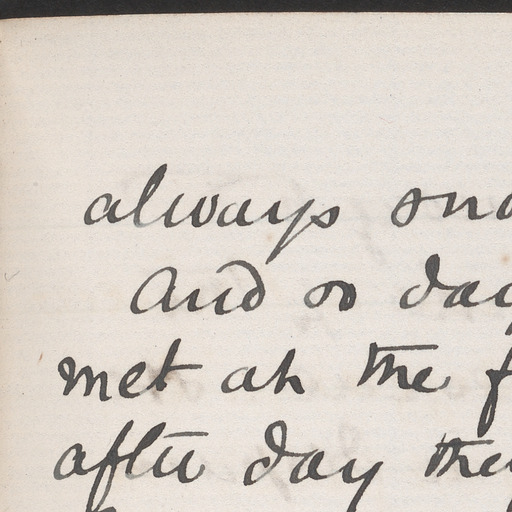 always
And so day
met at the f
after day they